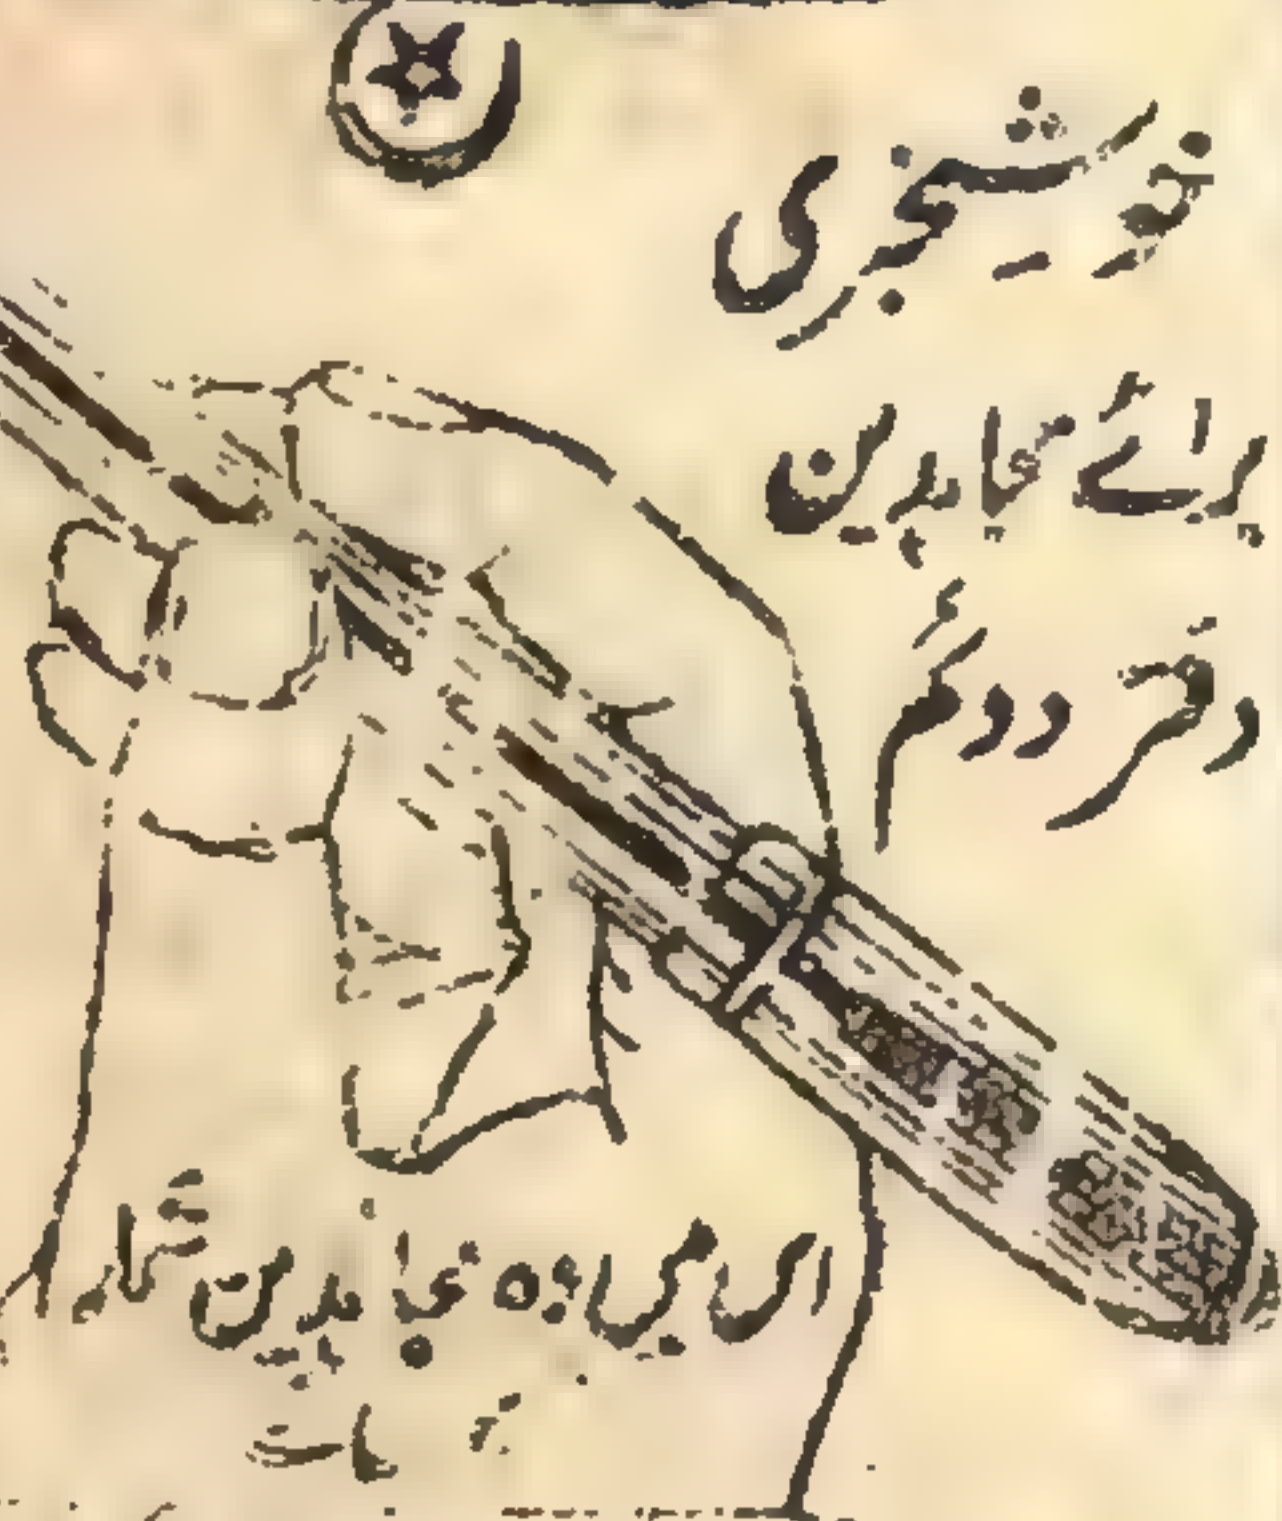 خوشخبری
برائے مجاہدین
دفتر دوئم
اس میں وہ مجاہدین